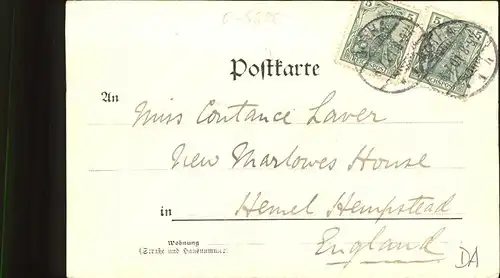 5 5
Postkarte
An Miss Contance Laver
New Marlowes House
in Hemel Hempstead
England
Wohnung
(Straße und Hausnummer)
DA